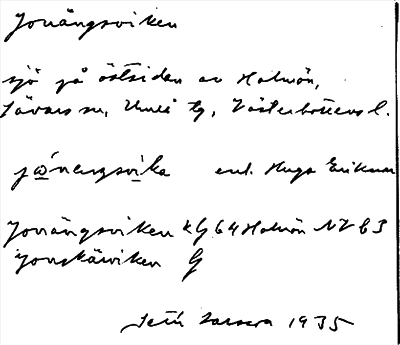 Jonängsviken
sjö på östsidan av Holmön,
Sävars sn, Umeå tg, Västerbottens l.
enl. Hugo Eriksson
Jonängsviken kG 64 Holmön NV b 3
Jonskäviken G
Seth Larsson 1935